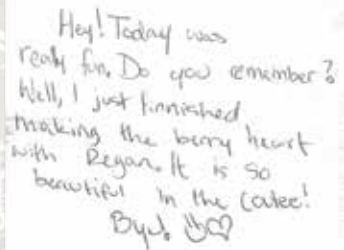 Hey! Today was
realy fun. Do you emember?
Well, I just finnished
making the berry heart
with Regan. It is so
beautiful in the
Bye!